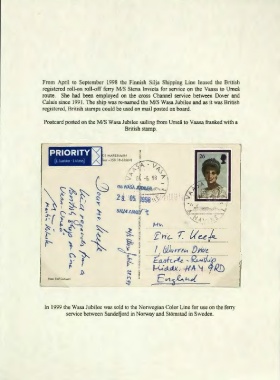 From April to September 1998 the Finnish Silja Shipping Line leased the British
registered roll-on roll-off ferry M/S Stena Invicta for service on the Vaasa to Umeå
route. She had been employed on the cross Channel service between Dover and
Calais since 1991. The ship was re-named the M/S Wasa Jubilee and as it was British
registered, British stamps could be used on mail posted on board.
Postcard posted on the M/S Wasa Jubilee sailing from Umeå to Vaasa franked with a
British stamp.
PRIORITY
VAASA - VASA
M/S WASA JUBILEE
21 05 1998
Dear Mr Keefe
Kind regards from a
British
26
Mr.
Eric T. Keefe
1 Warren Drive
Eastcote - Ruislip
Middx. HA4 9RD
England
In 1999 the Wasa Jubilee was sold to the Norwegian Color Line for use on the ferry
service between Sandefjord in Norway and Strömstad in Sweden.